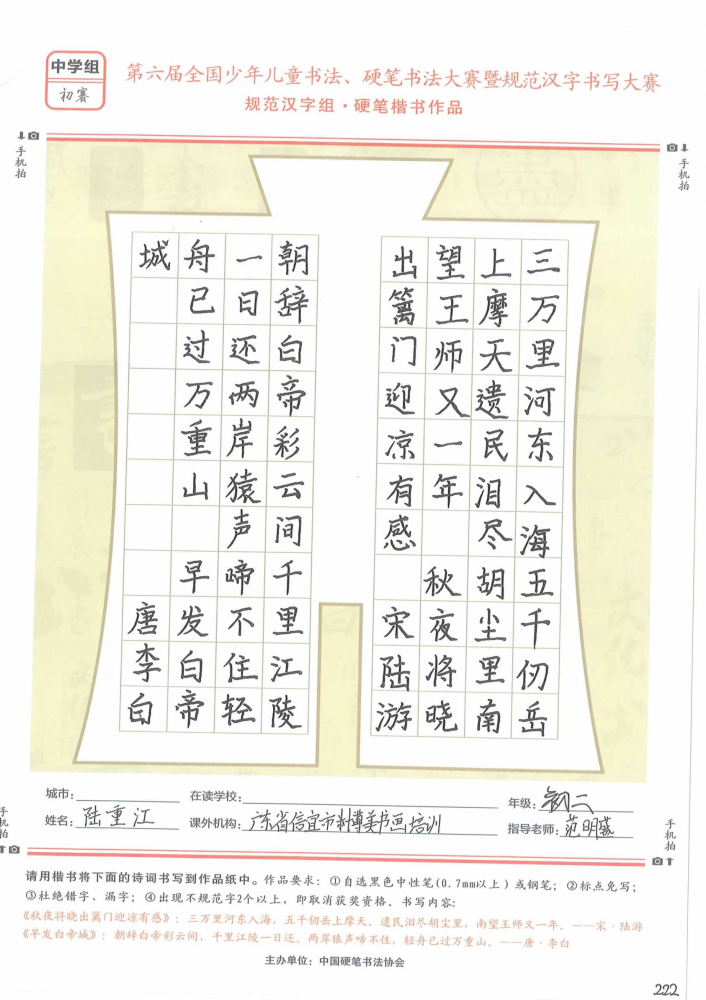 中学组
初赛
第六届全国少年儿童书法、硬笔书法大赛暨规范汉字书写大赛
规范汉字组·硬笔楷书作品
手机拍
手机拍
三万里河东入海五千仞岳
上摩天遗民泪尽胡尘里南
望王师又一年 秋夜将晓
出篱门迎凉有感 宋陆游
朝辞白帝彩云间千里江陵
一日还两岸猿声啼不住轻
舟已过万重山 早发白帝
城 唐李白
城市： 在读学校： 年级：初二
姓名：陆重江 课外机构：广东省信宜市博美书画培训 指导老师：范明盛
手机拍
手机拍
请用楷书将下面的诗词书写到作品纸中。作品要求：①自选黑色中性笔(0.7mm以上)或钢笔；②标点免写；
③杜绝错字、漏字；④出现不规范字2个以上，即取消获奖资格。书写内容：
《秋夜将晓出篱门迎凉有感》：三万里河东入海，五千仞岳上摩天。遗民泪尽胡尘里，南望王师又一年。——宋·陆游
《早发白帝城》：朝辞白帝彩云间，千里江陵一日还。两岸猿声啼不住，轻舟已过万重山。——唐·李白
主办单位：中国硬笔书法协会
222